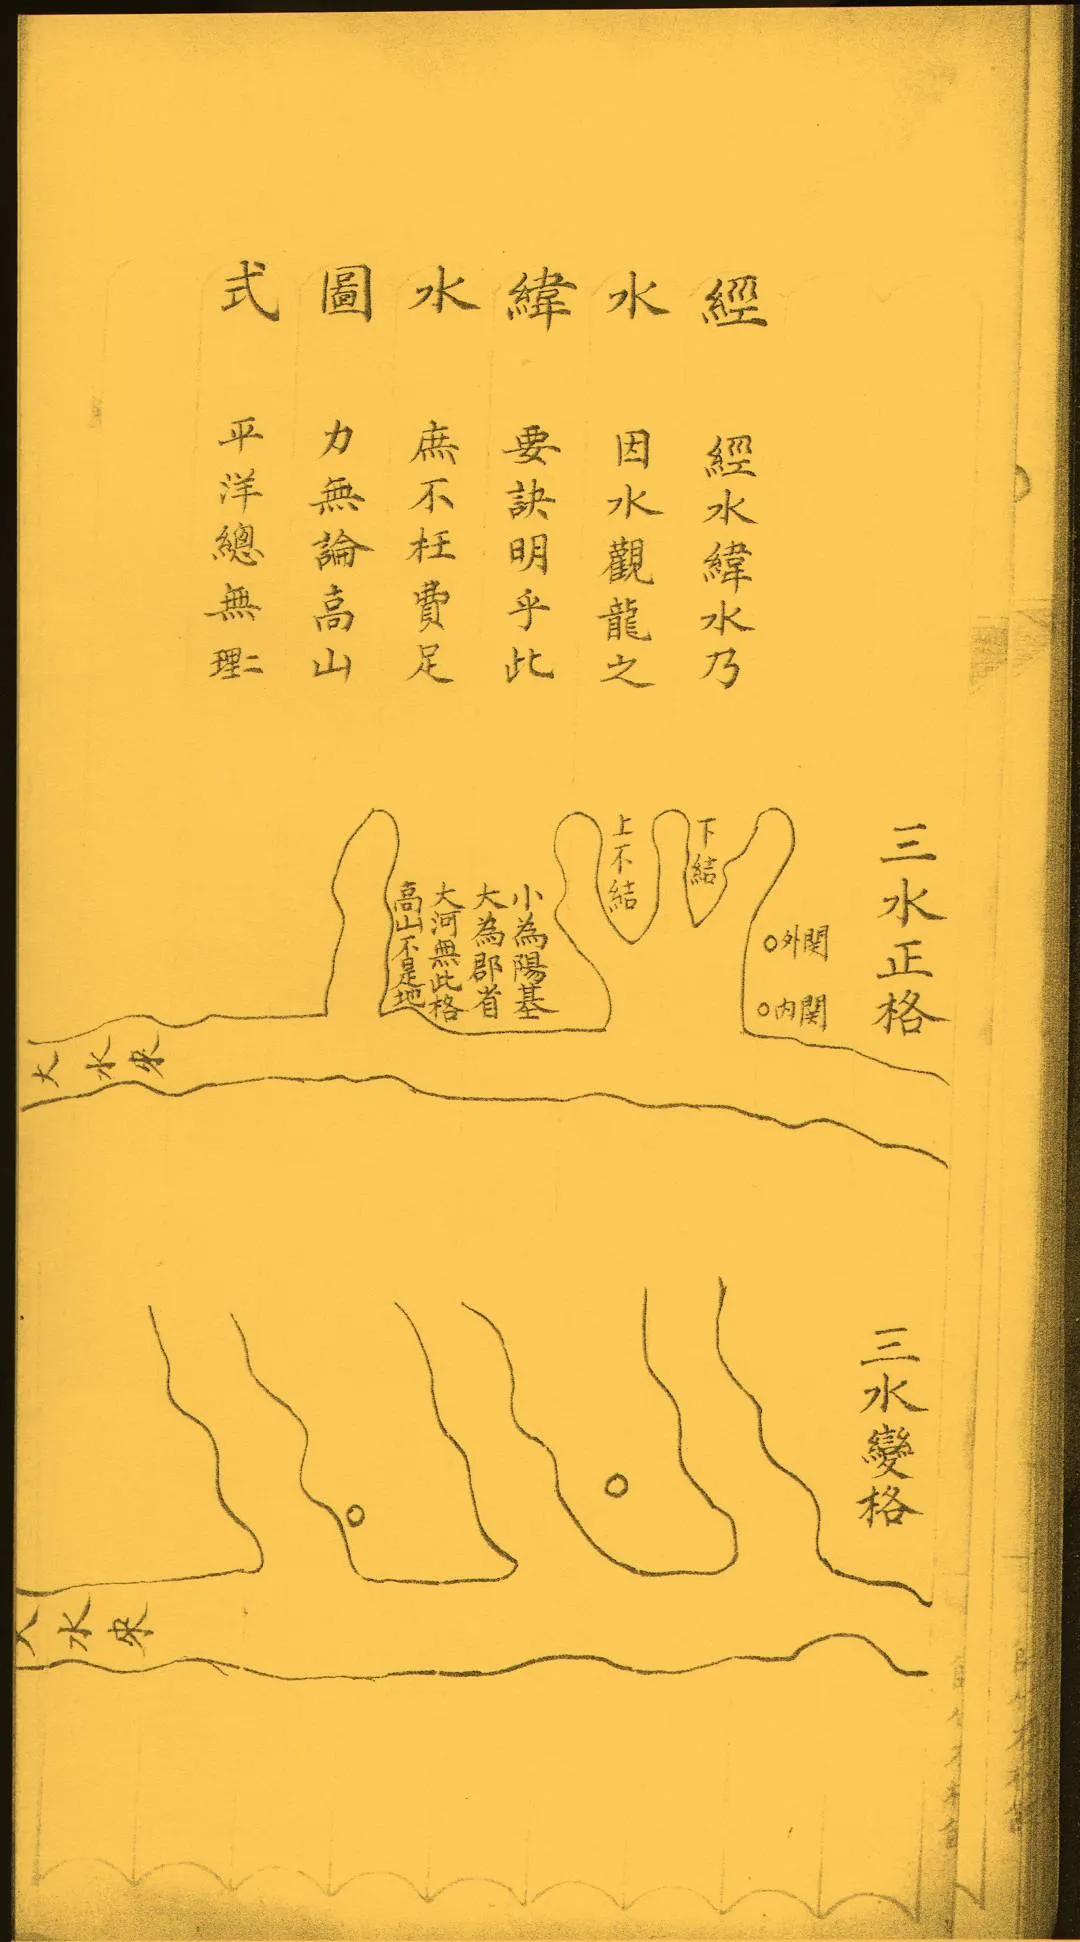 經水緯水圖式
經水緯水乃
因水觀龍之
要訣明乎此
庶不枉費足
力無論高山
平洋總無二理
三水正格
下結
上不結
外関
内関
小為陽基
大為郡省
大河無此格
高山不是地
大水來
三水變格
大水來